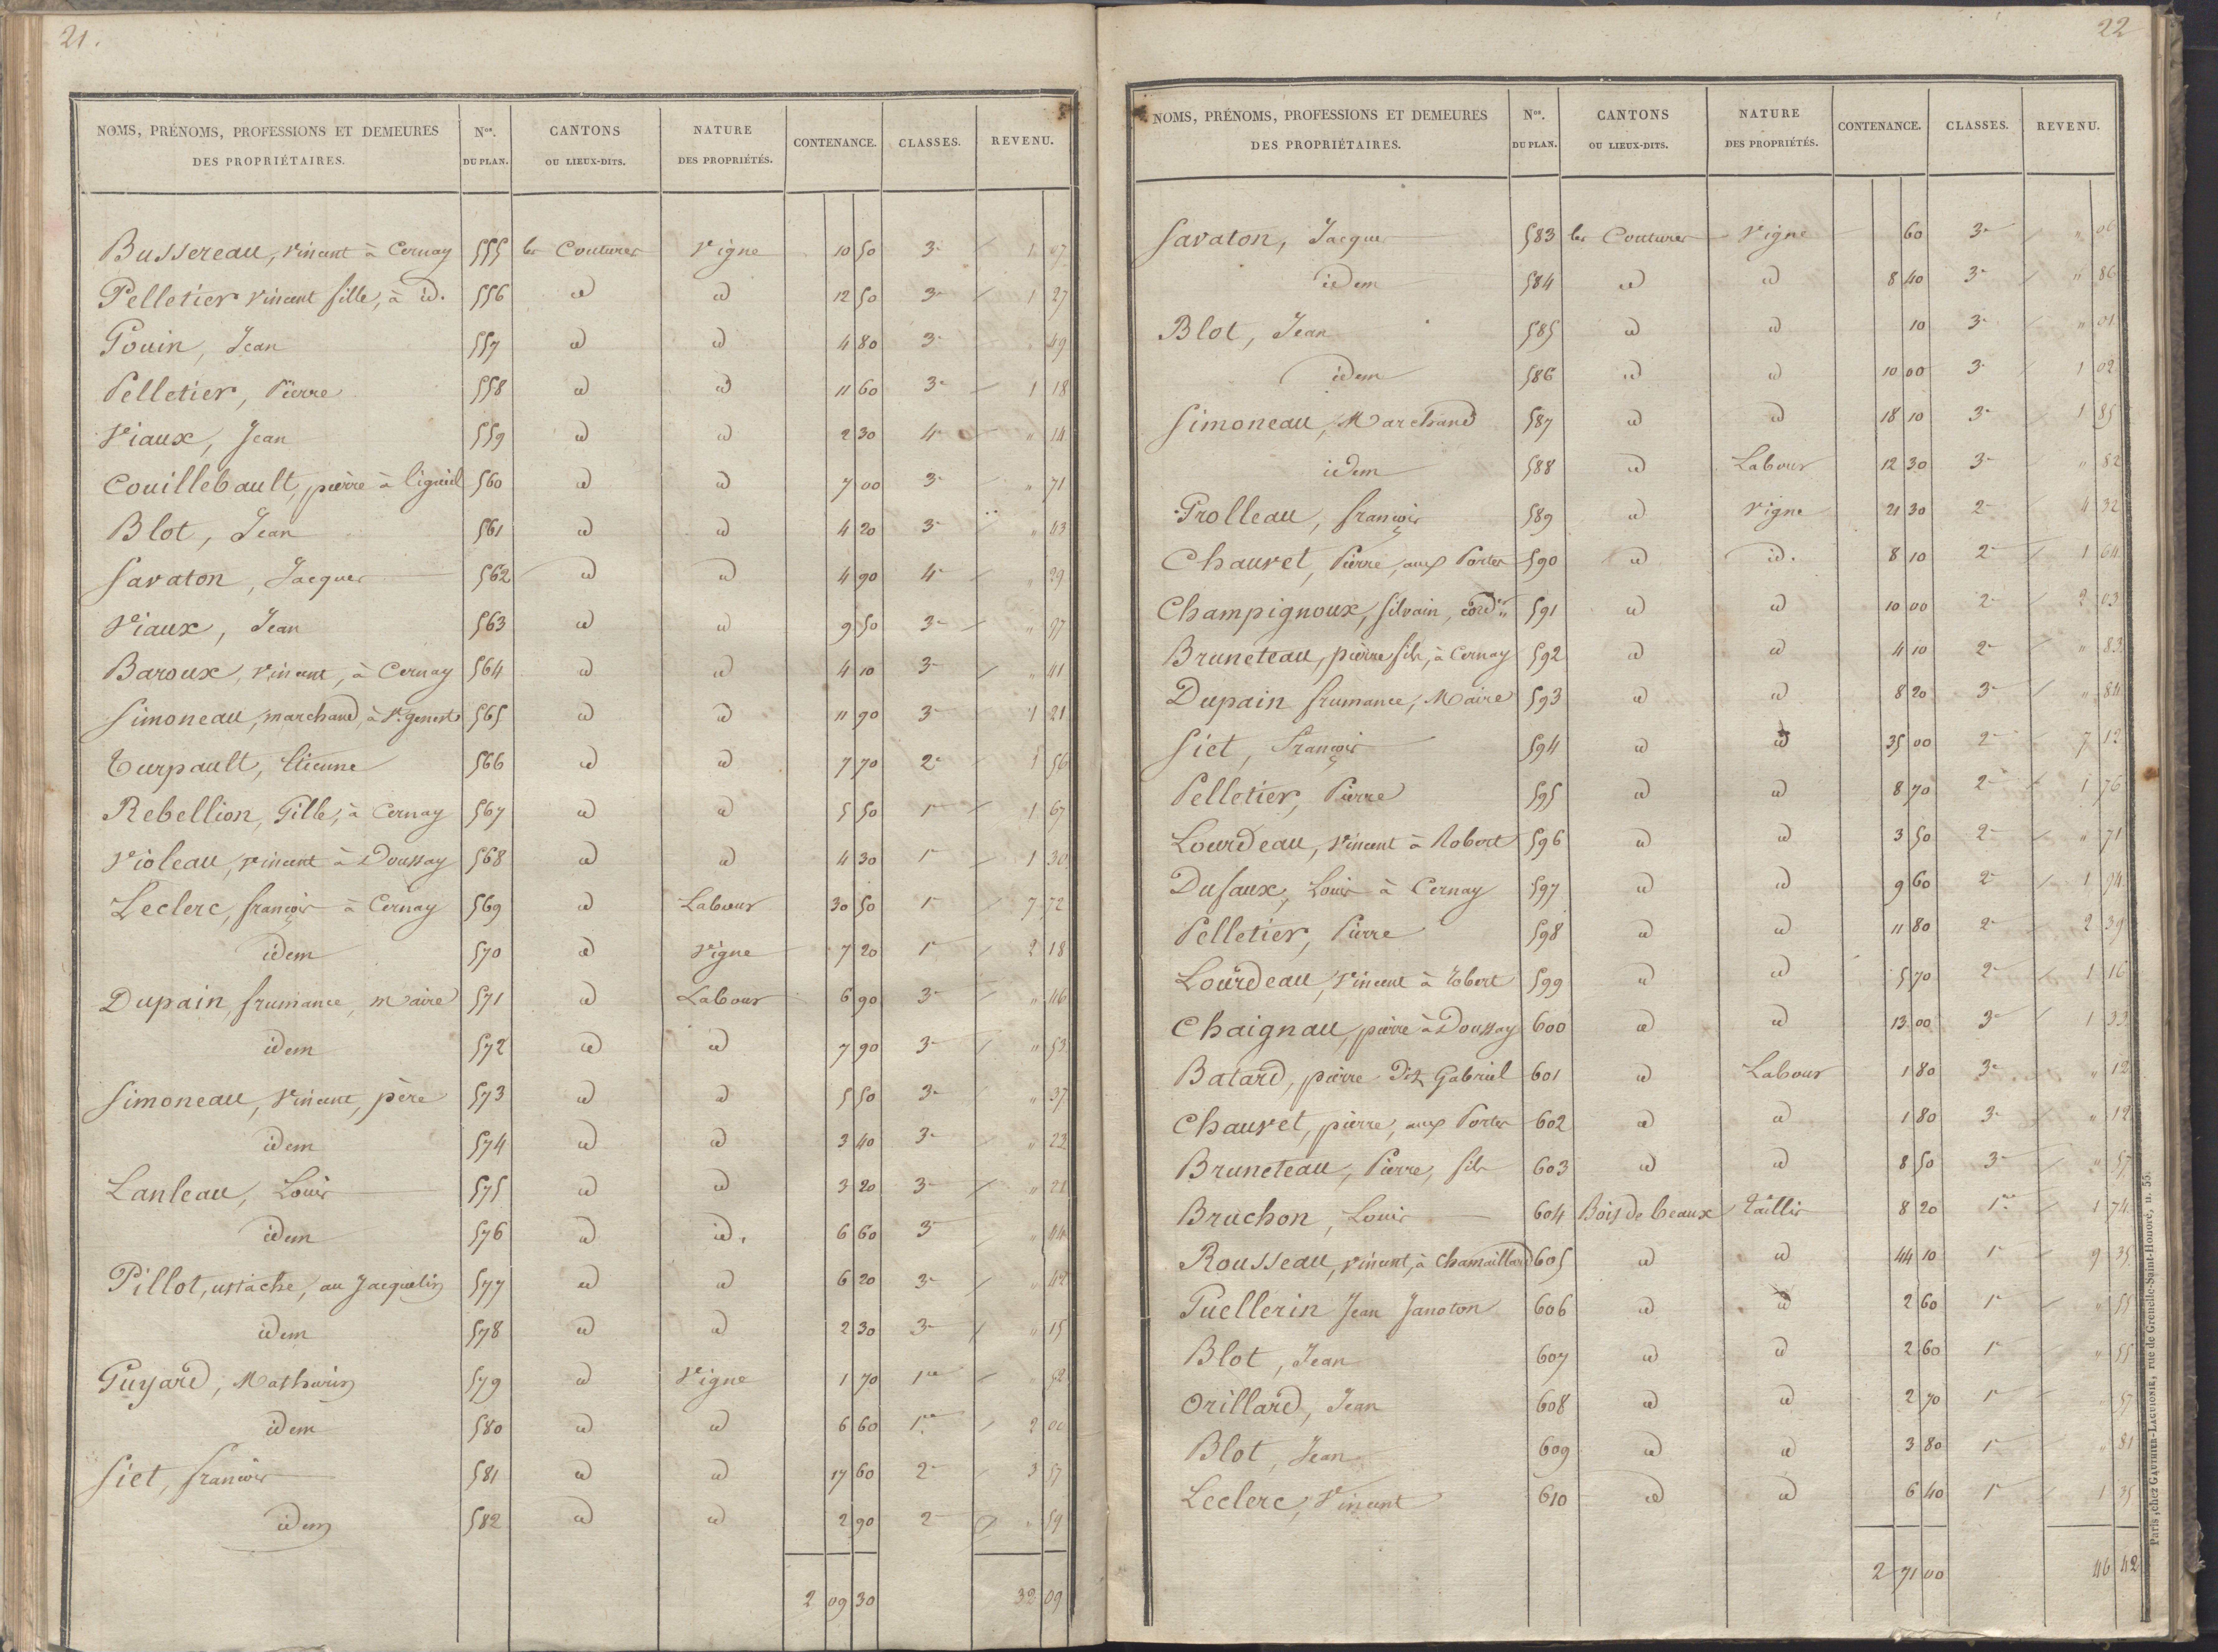 21.
NOMS, PRÉNOMS, PROFESSIONS ET DEMEURES DES PROPRIÉTAIRES. Nos. DU PLAN. CANTONS OU LIEUX-DITS. NATURE DES PROPRIÉTÉS. CONTENANCE. CLASSES. REVENU.
Bussereau, vincent à Cernay 555 les Coutures Vigne 10 50 3e 1 07
Pelletier vincent fille, à id. 556 id id 12 50 3e 1 27
Gouin, Jean 557 id id 4 80 3e 49
Pelletier, Pierre 558 id id 11 60 3e 1 18
Viaux, Jean 559 id id 2 30 4e " 14
Couillebault, pierre à ligueil 560 id id 7 00 3e " 71
Blot, Jean 561 id id 4 20 3e " 43
Savaton, Jacques 562 id id 4 90 4e " 29
Viaux, Jean 563 id id 9 50 3e " 97
Baroux, vincent, à Cernay 564 id id 4 10 3e " 41
Simoneau, marchand, à St. genest 565 id id 11 90 3e 1 21
Turpault, Etienne 566 id id 7 70 2e 1 56
Rebellion, Gille, à Cernay 567 id id 5 50 1e 1 67
Violeau, vincent à Doussay 568 id id 4 30 1e 1 30
Leclerc, françois à Cernay 569 id Labour 30 50 1e 7 72
idem 570 id Vigne 7 20 1e 2 18
Dupain, frumance, maire 571 id Labour 6 90 3e " 46
idem 572 id id 7 90 3e " 53
Simoneau, Vincent, père 573 id id 5 50 3e " 37
idem 574 id id 3 40 3e " 23
Lanleau, Louis 575 id id 3 20 3e " 21
idem 576 id id. 6 60 3e " 44
Pillot, ustache, au Jacquelin 577 id id 6 20 3e " 42
idem 578 id id 2 30 3e " 15
Guyard, Mathurin 579 id Vigne 1 70 1re " 52
idem 580 id id 6 60 1re 2 00
Siet, françois 581 id id 17 60 2e 3 57
idem 582 id id 2 90 2e " 59
2 09 30 32 09
22
NOMS, PRÉNOMS, PROFESSIONS ET DEMEURES DES PROPRIÉTAIRES. Nos. DU PLAN. CANTONS OU LIEUX-DITS. NATURE DES PROPRIÉTÉS. CONTENANCE. CLASSES. REVENU.
Savaton, Jacques 583 les Coutures Vigne 60 3e " 06
idem 584 id id 8 40 3e " 86
Blot, Jean 585 id id 10 3e " 01
idem 586 id id 10 00 3e 1 02
Simoneau, Marchand 587 id id 18 10 3e 1 85
idem 588 id Labour 12 30 3e " 82
Prolleau, françois 589 id Vigne 21 30 2e 4 32
Chauvet, Pierre, aux Portes 590 id id. 8 10 2e 1 64
Champignoux, silvain, cordr 591 id id 10 00 2e 2 03
Bruneteau, pierre fils, à Cernay 592 id id 4 10 2e " 83
Dupain frumance, Maire 593 id id 8 20 3e " 84
Siet, françois 594 id id 35 00 2e 7 12
Pelletier, Pierre 595 id id 8 70 2e 1 76
Lourdeau, Vincent à Robert 596 id id 3 50 2e " 71
Dufaux, Louis à Cernay 597 id id 9 60 2e 1 94
Pelletier, Pierre 598 id id 11 80 2e 2 39
Lourdeau, Vincent à robert 599 id id 5 70 2e 1 16
Chaignau, pierre à Doussay 600 id id 13 00 3e 1 33
Batard, pierre dit Gabriel 601 id Labour 1 80 3e " 12
Chauvet, pierre, aux Portes 602 id id 1 80 3e " 12
Bruneteau, Pierre, fils 603 id id 8 50 3e " 57
Bruchon, Louis 604 Bois de beaux Taillis 8 20 1re 1 74
Rousseau, vincent, à Chamaillard 605 id id 44 10 1e 9 35
Puellerin Jean Janoton 606 id id 2 60 1e " 55
Blot, Jean 607 id id 2 60 1e " 55
Orillard, Jean 608 id id 2 70 1e 57
Blot, Jean 609 id id 3 80 1e " 81
Leclerc, Vincent 610 id id 6 40 1e 1 35
2 71 00 46 42
Paris, chez GAUTHIER-LAGUIONIE, rue de Grenelle-Saint-Honoré, n. 55.